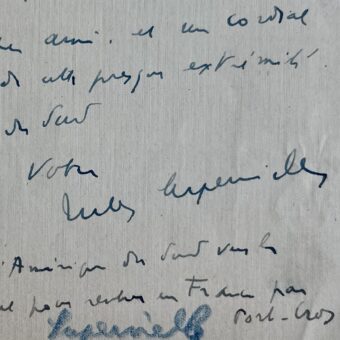 ami. et un cordial
de cette presque extrémité
du Sud
Votre
Jules Supervielle
'Amérique du Sud vers le
pour rentrer en France par
Supervielle Port-Cros